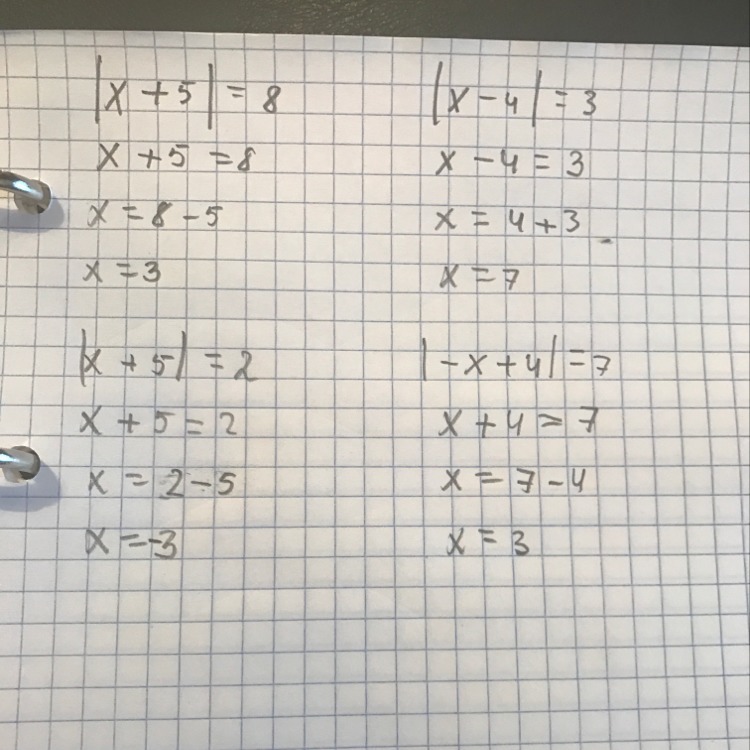 |x + 5| = 8
x + 5 = 8
x = 8 - 5
x = 3
|x - 4| = 3
x - 4 = 3
x = 4 + 3
x = 7
|x + 5| = 2
x + 5 = 2
x = 2 - 5
x = -3
|-x + 4| = 7
x + 4 = 7
x = 7 - 4
x = 3